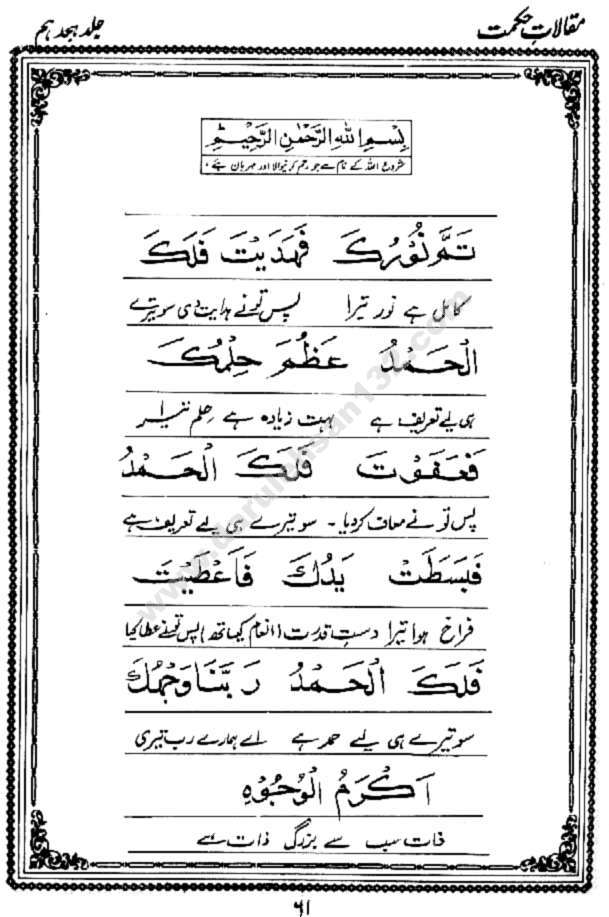 مقالاتِ حکمت
جلد ہجدہم
بِسْمِ اللهِ الرَّحْمٰنِ الرَّحِيْمِ
شروع اللہ کے نام سے جو رحم کرنیوالا اور مہربان ہے ۔
تَمَّ نُوْرُكَ فَهَدَيْتَ فَلَكَ
کامل ہے نور تیرا پس تونے ہدایت دی سو تیرے
الْحَمْدُ عَظُمَ حِلْمُكَ
ہی لیے تعریف ہے بہت زیادہ ہے حِلم تیرا
فَعَفَوْتَ فَلَكَ الْحَمْدُ
پس تو نے معاف کر دیا ۔ سو تیرے ہی لیے تعریف ہے
فَبَسَطَتْ يَدُكَ فَاَعْطَيْتَ
فراخ ہوا تیرا دستِ قدرت (انعام کیساتھ) پس تونے عطا کیا
فَلَكَ الْحَمْدُ رَبَّنَا وَجْهُكَ
سو تیرے ہی لیے حمد ہے اے ہمارے رب تیری
اَكْرَمُ الْوُجُوْهِ
ذات سب سے بزرگ ذات ہے
۶۱
www.darulehsan132.com